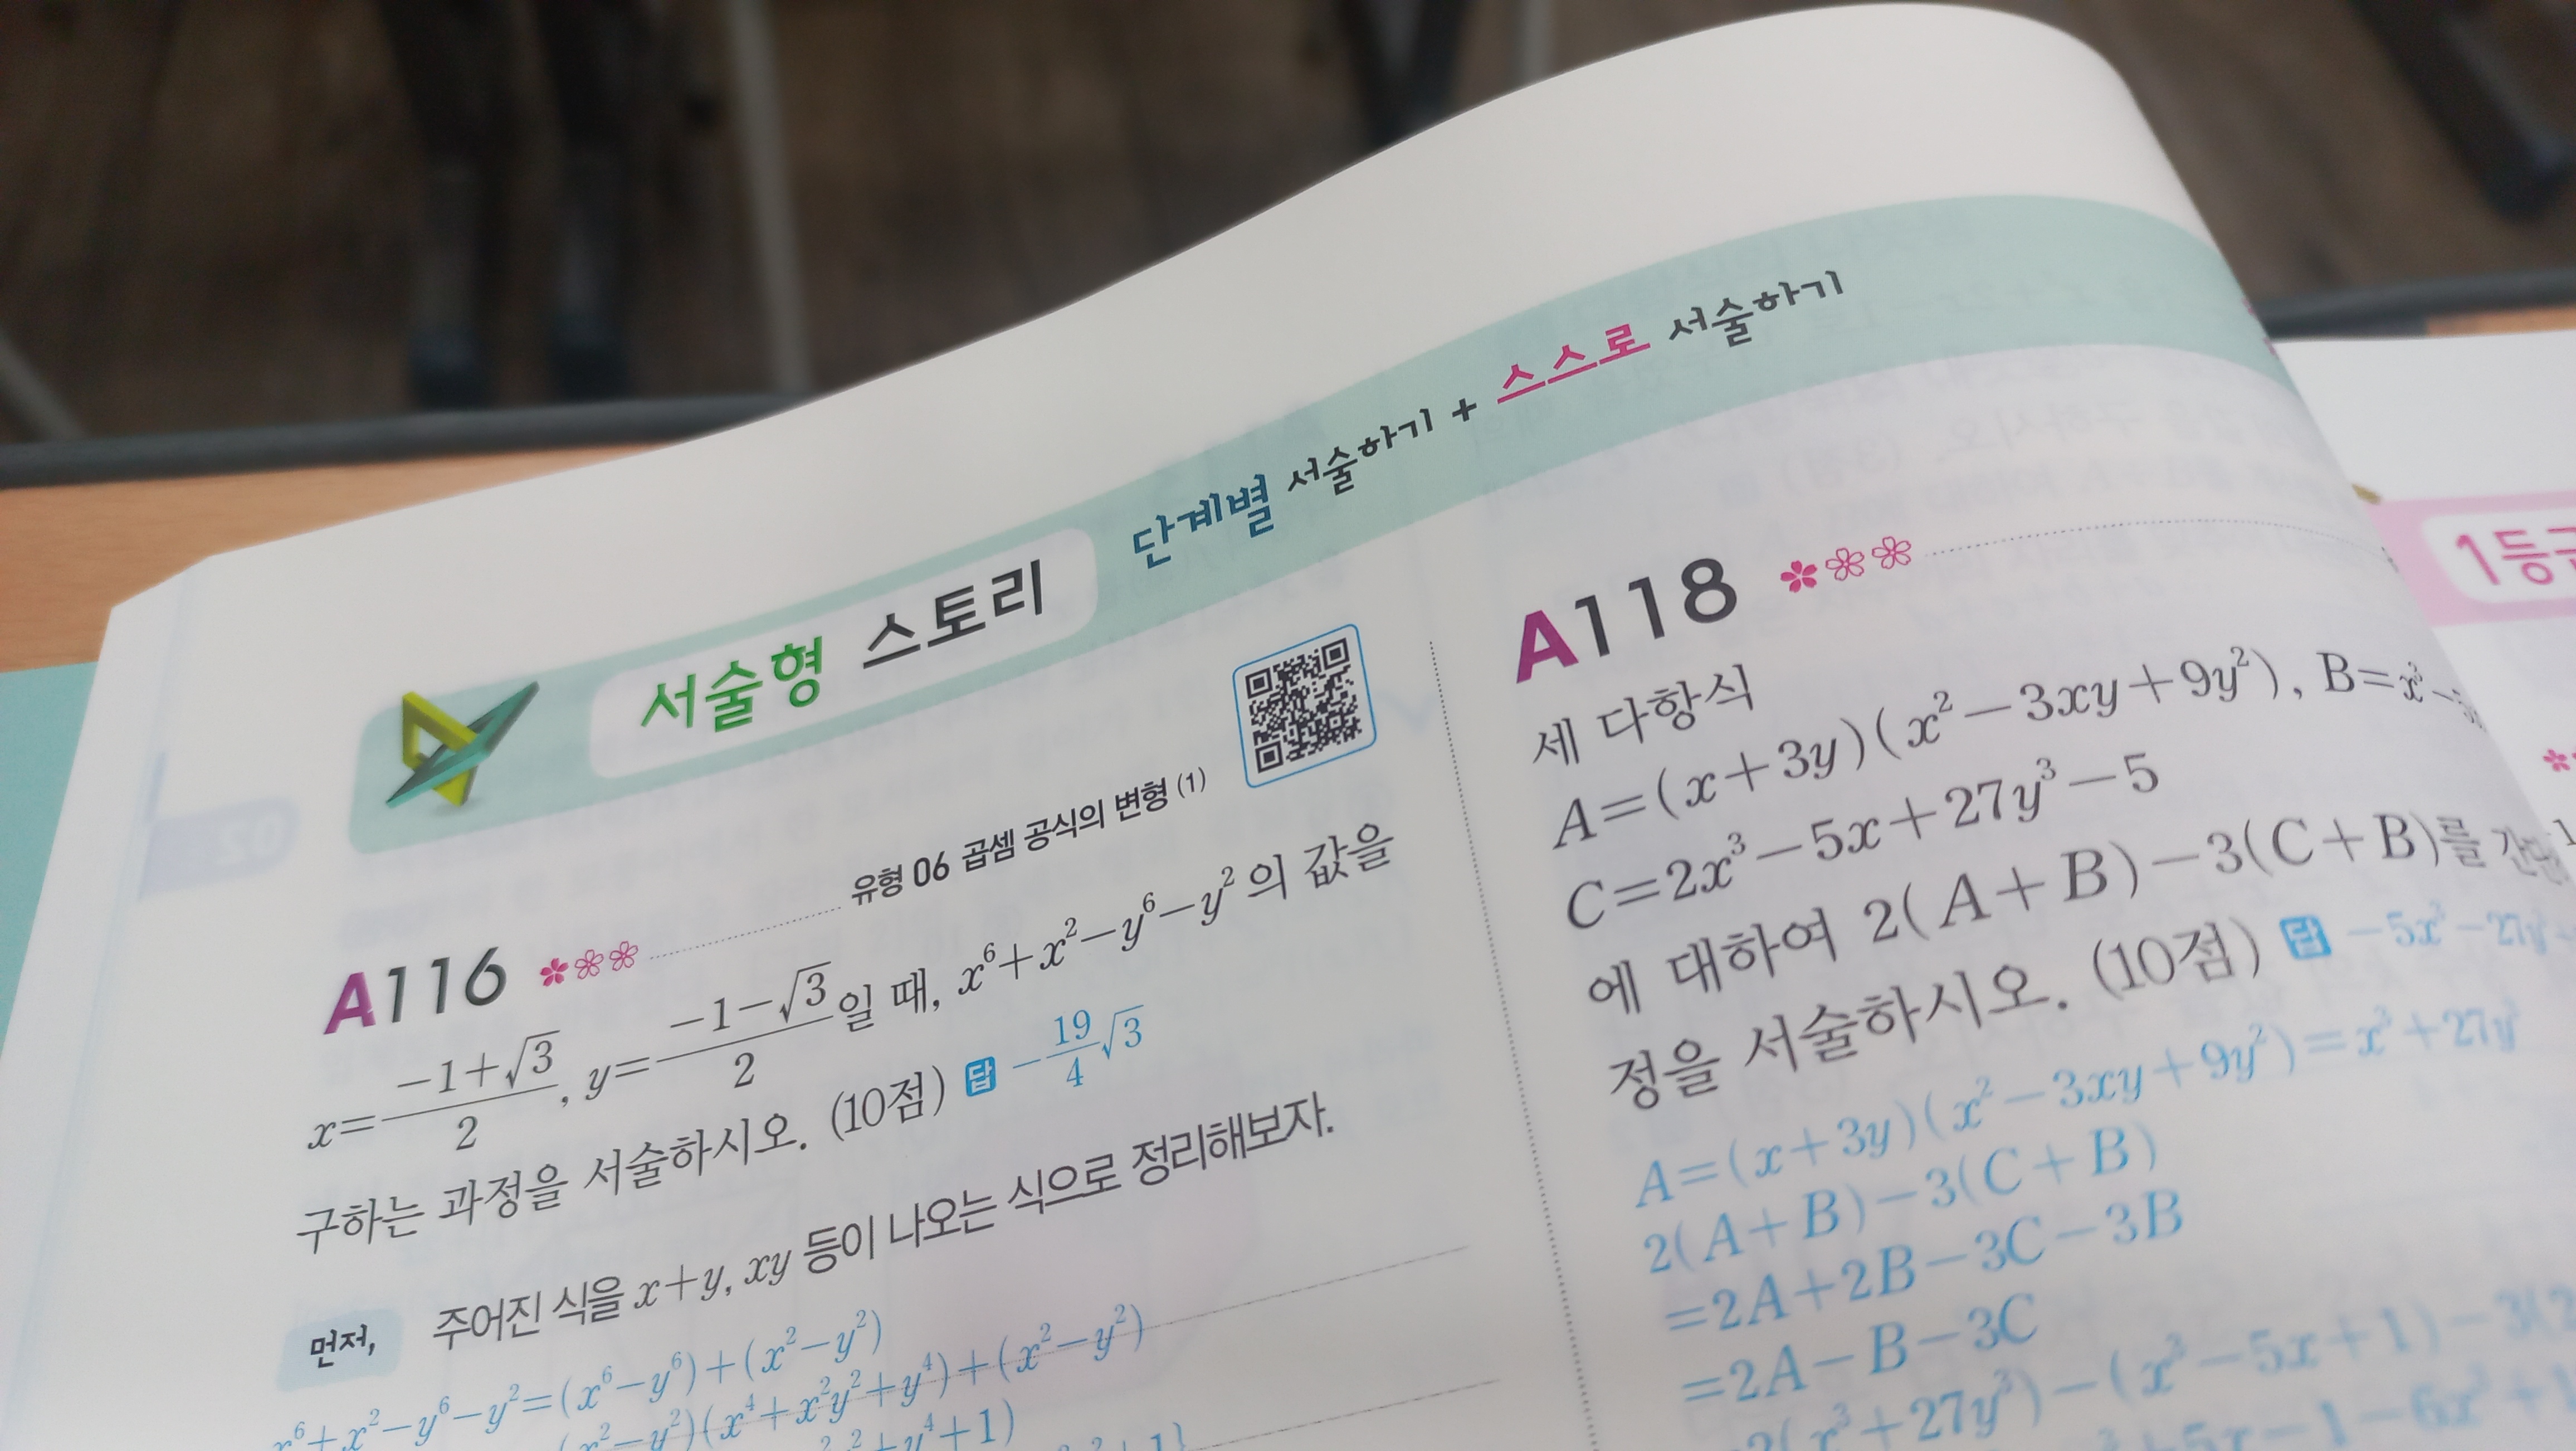 서술형 스토리 단계별 서술하기 + 스스로 서술하기
A116
유형 06 곱셈 공식의 변형 (1)
x=\frac{-1+\sqrt{3}}{2}, y=\frac{-1-\sqrt{3}}{2}일 때, x^6+x^2-y^6-y^2의 값을
구하는 과정을 서술하시오. (10점) 답 -\frac{19}{4}\sqrt{3}
먼저, 주어진 식을 x+y, xy 등이 나오는 식으로 정리해보자.
x^6+x^2-y^6-y^2=(x^6-y^6)+(x^2-y^2)
(x^2-y^2)(x^4+x^2y^2+y^4)+(x^2-y^2)
+y^4+1)
A118
세 다항식
A=(x+3y)(x^2-3xy+9y^2), B=x^3-
C=2x^3-5x+27y^3-5
에 대하여 2(A+B)-3(C+B)를
정을 서술하시오. (10점) 답 -5x^3-27y^3
A=(x+3y)(x^2-3xy+9y^2)=x^3+27y^3
2(A+B)-3(C+B)
=2A+2B-3C-3B
=2A-B-3C
=2(x^3+27y^3)-(x^3-5x+1)-3(2
+5x-1-6x^3+1
1등급